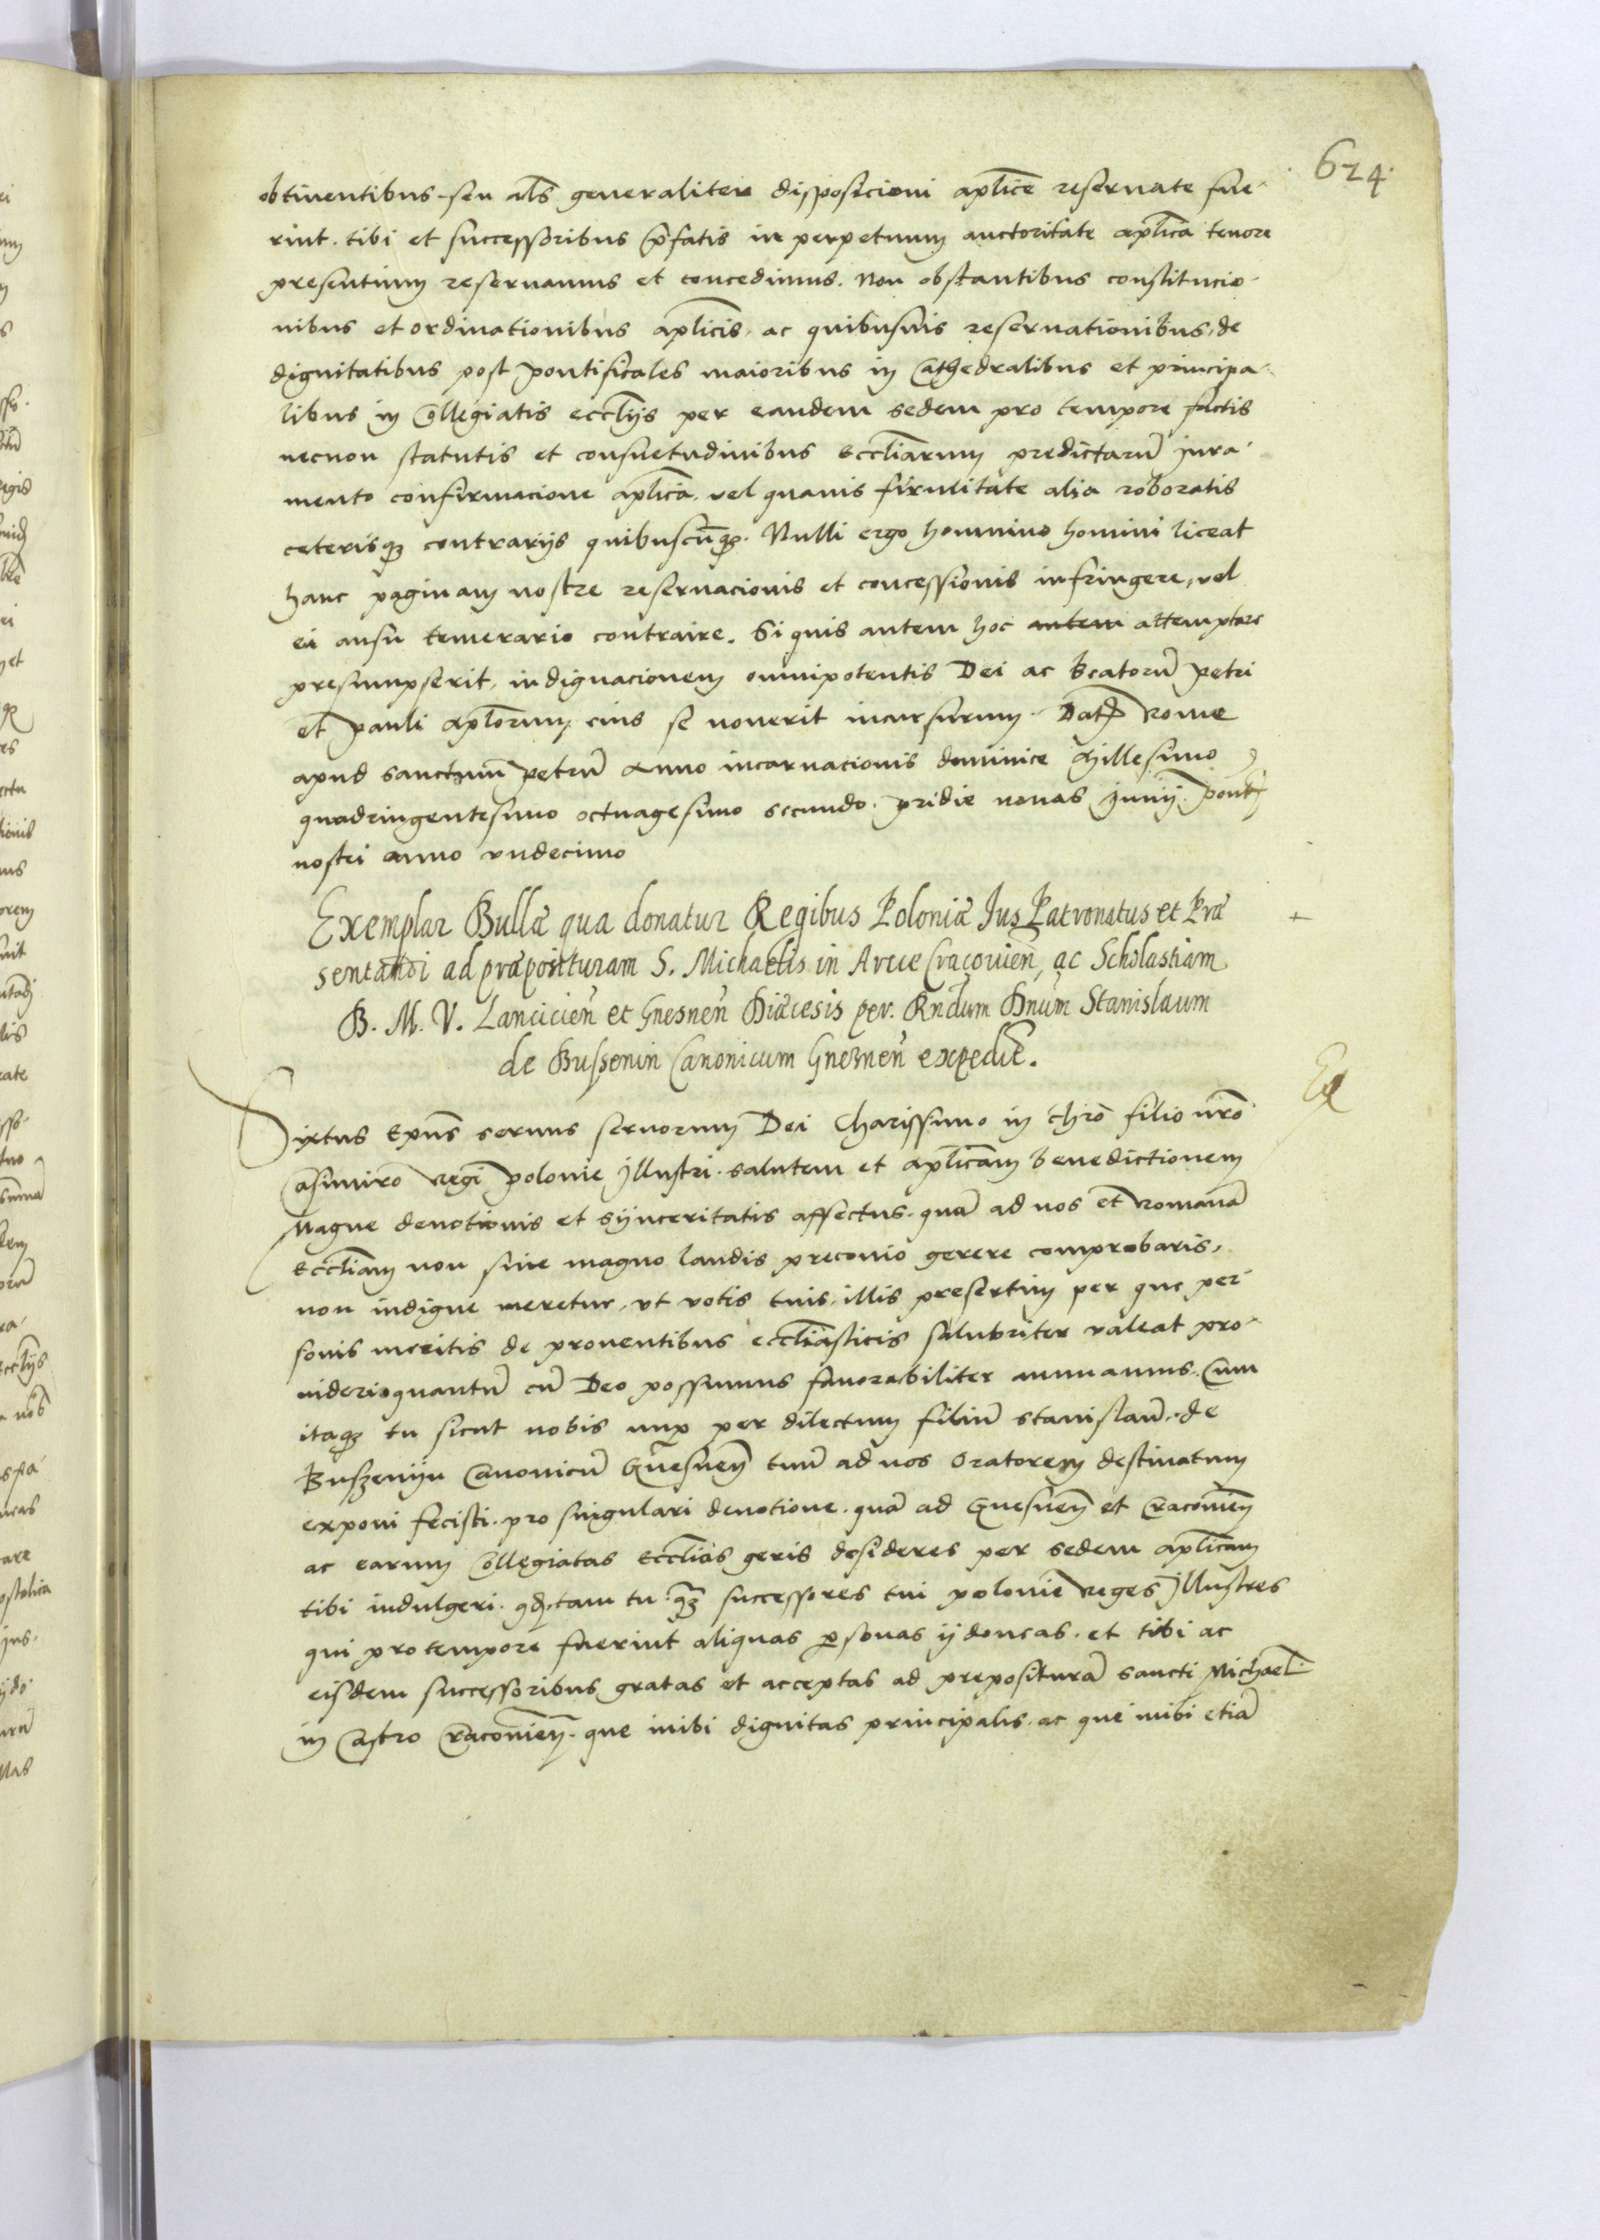 624.
obtinentibus seu als generaliter disposicioni aplice reseruate fue-
rint. tibi et successoribus pfatis in perpetuum auctoritate aplica tenore
presentium reseruamus et concedimus. Non obstantibus constitucio-
nibus et ordinationibus aplicis, ac quibusuis reseruationibus, de
dignitatibus post pontificales maioribus in Cathedralibus et principa-
libus in Collegiatis ecclijs per eandem sedem pro tempore factis
necnon statutis et consuetudinibus Eccliarum predictarũ Jura-
mento confirmacione aplica, vel quauis firmitate alia roboratis
ceterisq3 contrarijs quibuscũq3. Nulli ergo hominino homini liceat
hanc paginam nostre reseruacionis et concessionis infringere, vel
ei ausu temerario contraire. Si quis autem hoc autem attemptare
presumpserit, indignacionem omnipotentis Dei ac Beatorũ Petri
et Pauli Aplorum, eius se nouerit incursurum. Dat Rome
apud sanctum Petrũ Anno incarnationis dominice Millesimo
quadringentesimo octuagesimo secundo. pridie nonas Junij. Pont
nostri anno vndecimo
Exemplar Bullæ qua donatur Regibus Poloniæ Jus Patronatus et Præ
sentandi ad præposituram S. Michaelis in Arce Cracouieñ, ac Scholastiam
B. M. V. Lancicieñ et Gnesneñ Diæcesis per. Rndum Dnum Stanislaum
de Bussenin Canonicum Gnezneñ expedit̃.
Sixtus Epũs seruus seruorum Dei Charissimo in Chrō filio nrō
Casimiro Regi Polonie Jllustri. salutem et aplicam benedictionem
Magne deuotionis et synceritatis affectus. quã ad nos et Romanã
Eccliam non sine magno laudis preconio gerere comprobaris,
non indigne meretur, vt votis tuis, illis presertim per que per-
sonis meritis de prouentibus eccliasticis salubriter valeat pro-
uideri quantũ cũ Deo possumus fauorabiliter annuamus. Cum
itaq3 tu sicut nobis nup per dilectum filiũ stanislaũ de
Buszenijn Canonicũ Gnesneñ tuũ ad nos Oratorem destinatum
exponi fecisti. pro singulari deuotione. quã ad Gnesneñ et Cracouieñ
ac earum Collegiatas Ecclias geris desideres per sedem aplicam
tibi indulgeri. qđ tam tu q̃3 successores tui polonie Reges Jllustres
qui pro tempore fuerint aliquas psonas ijdoneas. et tibi ac
eisdem successoribus gratas et acceptas ad preposituram sancti Michael.
in Castro Cracouieñ. que inibi dignitas principalis. ac que inibi etiã